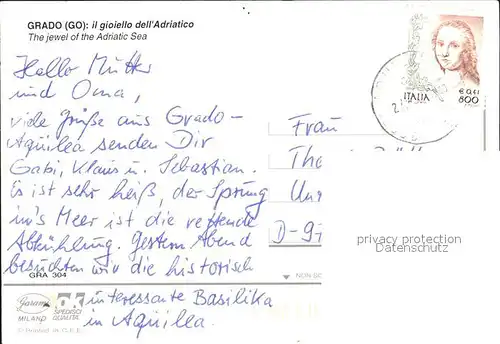 GRADO (GO): il gioiello dell'Adriatico
The jewel of the Adriatic Sea
Hallo Mutter
und Oma,
viele Grüße aus Grado-
Aquilea senden Dir
Gabi, Klaus u. Sebastian.
Es ist sehr heiß, der Sprung
in's Meer ist die rettende
Abkühlung. Gestern Abend
besuchten wir die historisch
interessante Basilika
in Aquilea.
GRA 304
MILANO
ITALIA
€ 0,41
800
Frau
The
D-9
privacy protection
Datenschutz